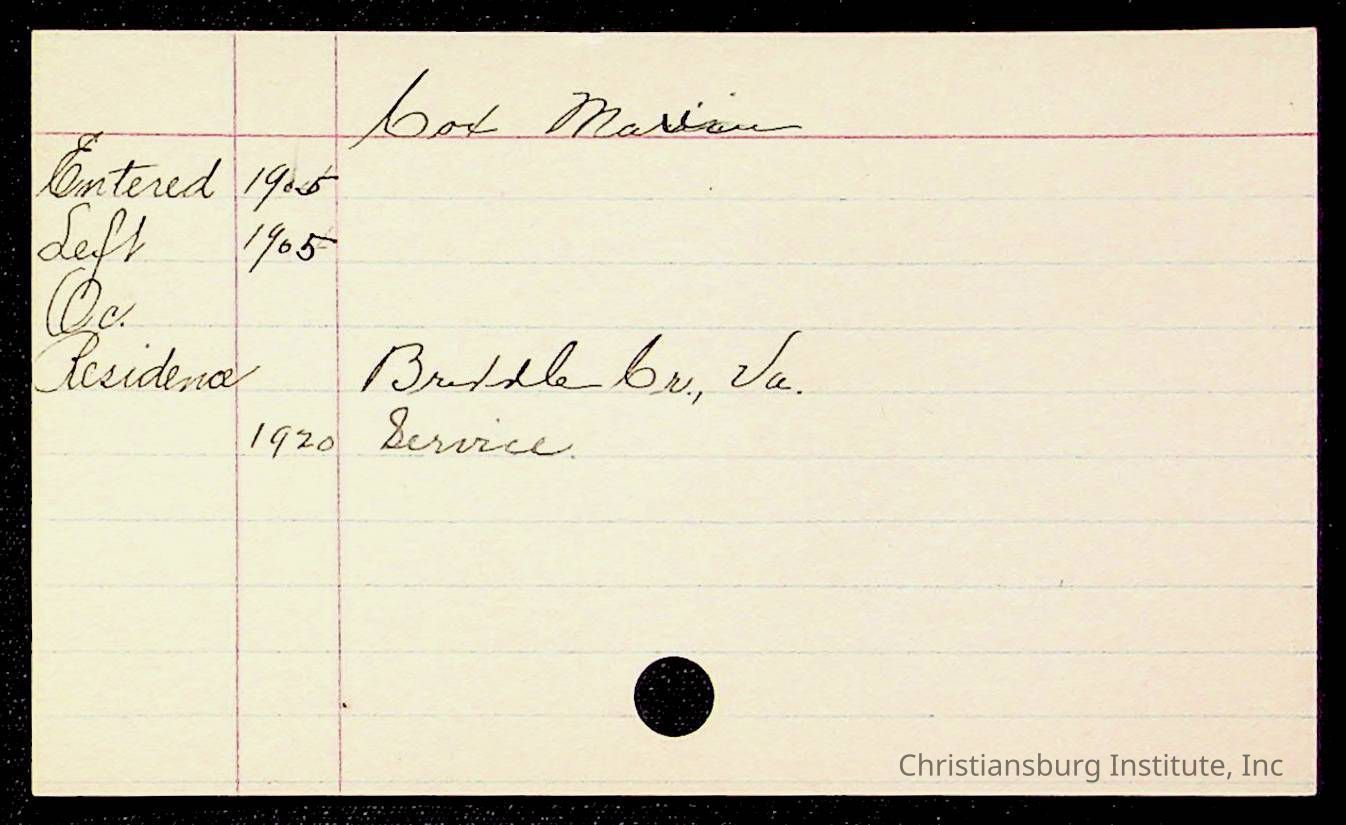 Cox Marian
Entered 1905
Left 1905
Oc.
Residence Briddle Cr., Va.
1920 Service.
Christiansburg Institute, Inc